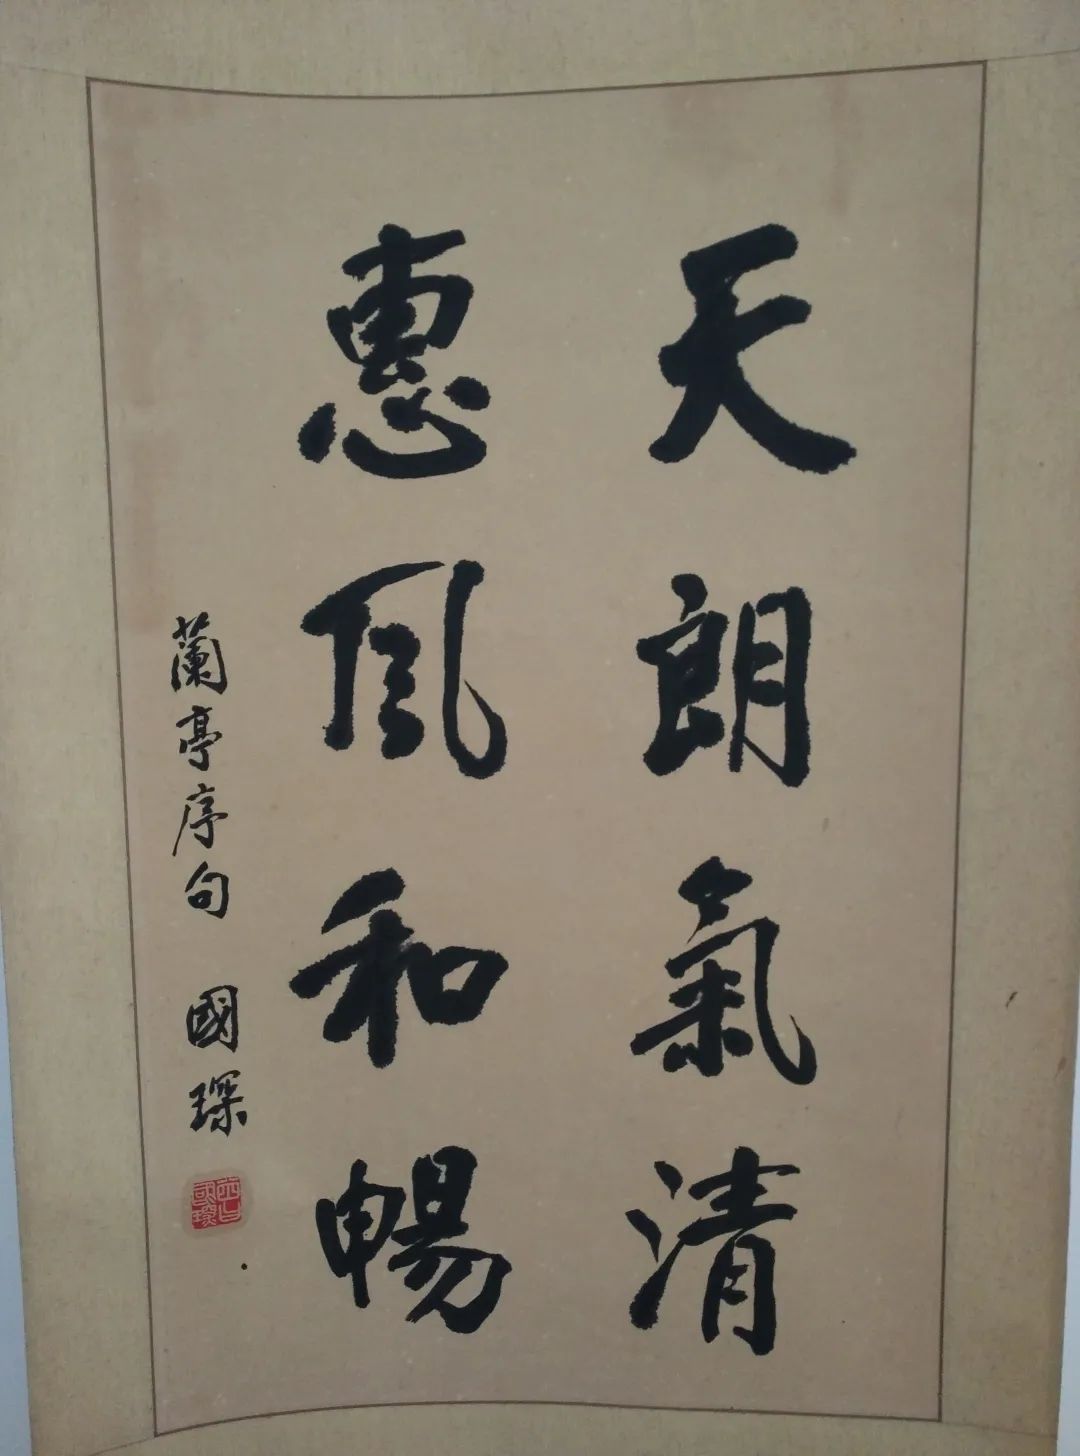 天朗氣清
惠风和暢
蘭亭序句 國琛